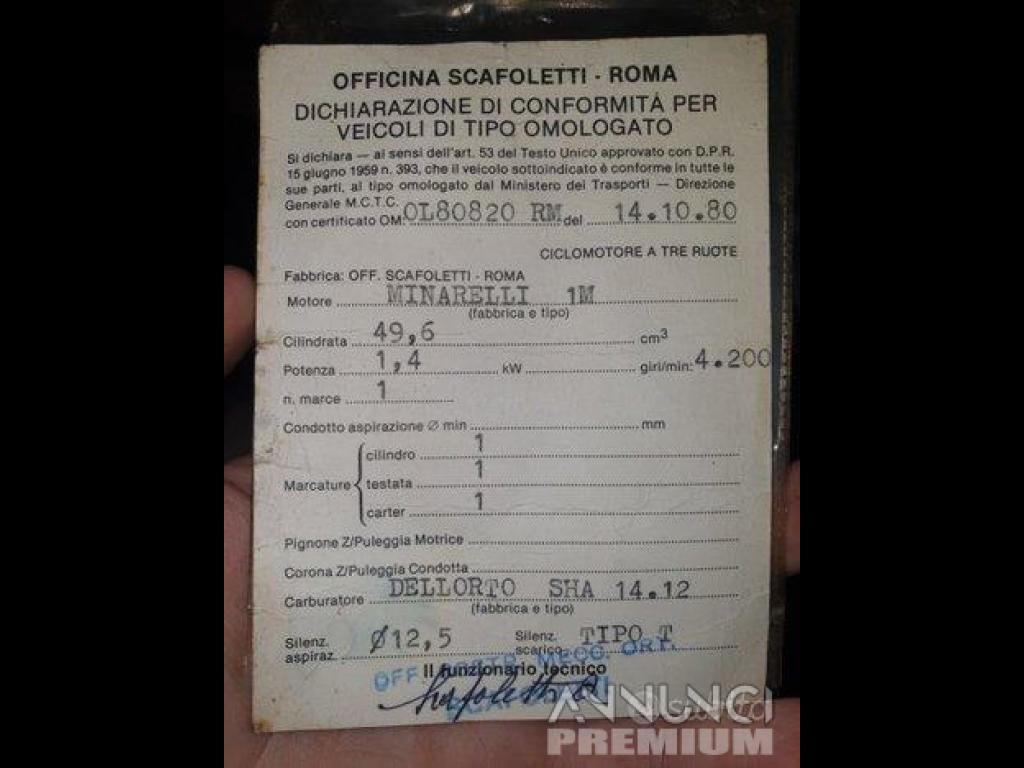 OFFICINA SCAFOLETTI - ROMA
DICHIARAZIONE DI CONFORMITÀ PER
VEICOLI DI TIPO OMOLOGATO
Si dichiara — ai sensi dell'art. 53 del Testo Unico approvato con D.P.R.
15 giugno 1959 n. 393, che il veicolo sottoindicato è conforme in tutte le
sue parti, al tipo omologato dal Ministero dei Trasporti — Direzione
Generale M.C.T.C.
con certificato OM: OL80820 RM del 14.10.80
CICLOMOTORE A TRE RUOTE
Fabbrica: OFF. SCAFOLETTI - ROMA
Motore MINARELLI 1M
(fabbrica e tipo)
Cilindrata 49,6 cm³
Potenza 1,4 kW giri/min: 4.200
n. marce 1
Condotto aspirazione Ø min mm
Marcature
cilindro 1
testata 1
carter 1
Pignone Z/Puleggia Motrice
Corona Z/Puleggia Condotta
Carburatore DELLORTO SHA 14.12
(fabbrica e tipo)
Silenz. aspiraz. Ø12,5 Silenz. scarico TIPO T
OFF. MECC. ORT.
Il funzionario tecnico
Scafoletti
ANNUNCI
PREMIUM